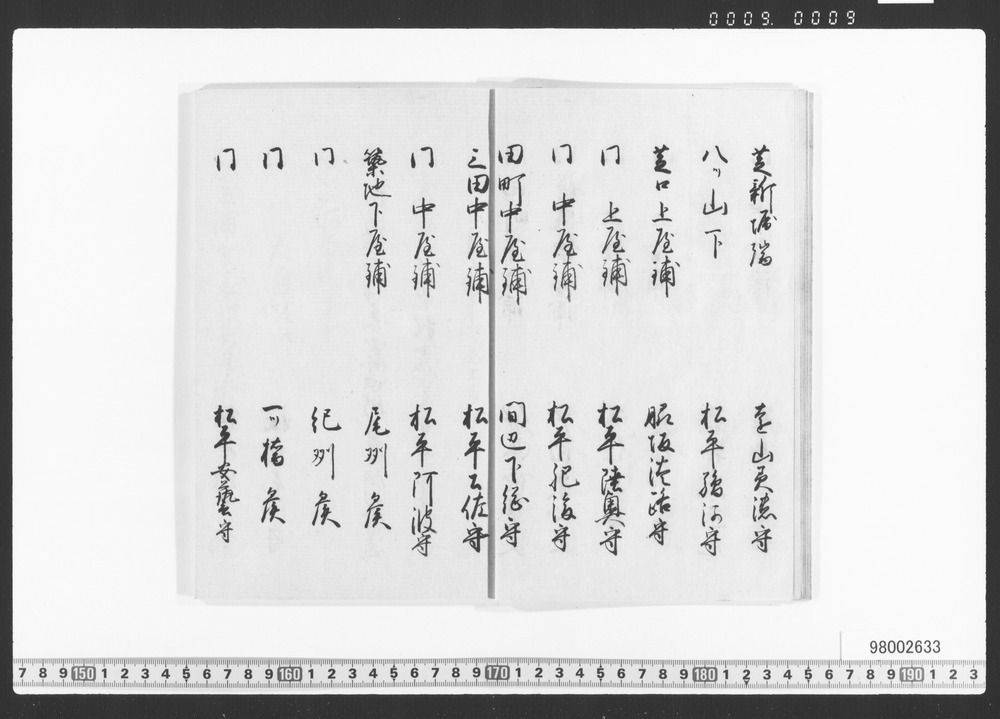 0009.0009
芝新堀端 遠山美濃守
八ツ山下 松平駿河守
芝口上屋鋪 脇坂淡路守
同 上屋鋪 松平陸奥守
同 中屋鋪 松平肥後守
田町中屋鋪 間辺下総守
三田中屋鋪 松平土佐守
同 中屋鋪 松平阿波守
築地下屋鋪 尾州侯
同 紀州侯
同 一ツ橋侯
同 松平安藝守
98002633
7 8 9 150 1 2 3 4 5 6 7 8 9 160 1 2 3 4 5 6 7 8 9 170 1 2 3 4 5 6 7 8 9 180 1 2 3 4 5 6 7 8 9 190 1 2 3